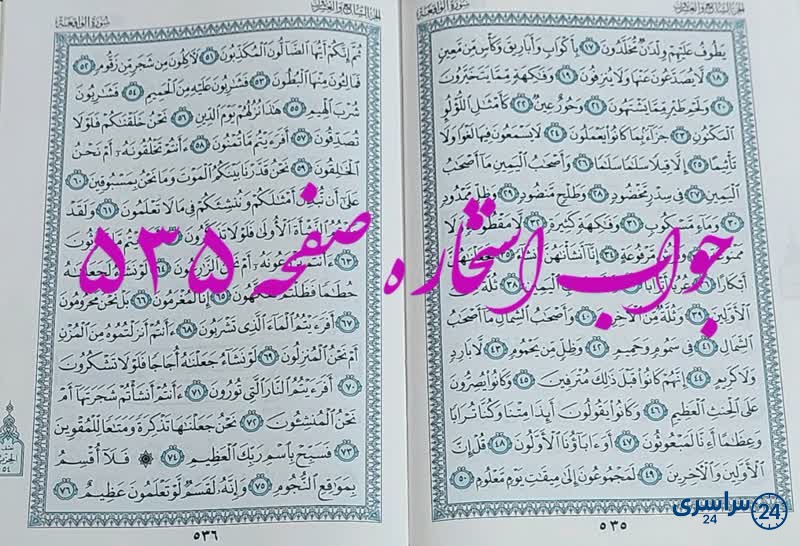 الجزء السابع والعشرون سورة الواقعة
يَطُوفُ عَلَيْهِمْ وِلْدَانٌ مُّخَلَّدُونَ ١٧ بِأَكْوَابٍ وَأَبَارِيقَ وَكَأْسٍ مِّن مَّعِينٍ
١٨ لَا يُصَدَّعُونَ عَنْهَا وَلَا يُنزِفُونَ ١٩ وَفَاكِهَةٍ مِّمَّا يَتَخَيَّرُونَ
٢٠ وَلَحْمِ طَيْرٍ مِّمَّا يَشْتَهُونَ ٢١ وَحُورٌ عِينٌ ٢٢ كَأَمْثَالِ اللُّؤْلُؤِ
الْمَكْنُونِ ٢٣ جَزَاءً بِمَا كَانُوا يَعْمَلُونَ ٢٤ لَا يَسْمَعُونَ فِيهَا لَغْوًا وَلَا
تَأْثِيمًا ٢٥ إِلَّا قِيلًا سَلَامًا سَلَامًا ٢٦ وَأَصْحَابُ الْيَمِينِ مَا أَصْحَابُ
الْيَمِينِ ٢٧ فِي سِدْرٍ مَّخْضُودٍ ٢٨ وَطَلْحٍ مَّنضُودٍ ٢٩ وَظِلٍّ مَّمْدُودٍ
٣٠ وَمَاءٍ مَّسْكُوبٍ ٣١ وَفَاكِهَةٍ كَثِيرَةٍ ٣٢ لَّا مَقْطُوعَةٍ وَلَا
مَمْنُوعَةٍ ٣٣ مَّرْفُوعَةٍ ٣٤ إِنَّا أَنشَأْنَاهُنَّ إِنشَاءً
أَبْكَارًا أَتْرَابًا الْيَمِينِ ٣٨ ثُلَّةٌ
الْأَوَّلِينَ ٣٩ وَثُلَّةٌ مِّنَ الْآخِرِينَ ٤٠ وَأَصْحَابُ الشِّمَالِ مَا أَصْحَابُ
الشِّمَالِ ٤١ فِي سَمُومٍ وَحَمِيمٍ ٤٢ وَظِلٍّ مِّن يَحْمُومٍ ٤٣ لَّا بَارِدٍ
وَلَا كَرِيمٍ ٤٤ إِنَّهُمْ كَانُوا قَبْلَ ذَٰلِكَ مُتْرَفِينَ ٤٥ وَكَانُوا يُصِرُّونَ
عَلَى الْحِنثِ الْعَظِيمِ ٤٦ وَكَانُوا يَقُولُونَ أَئِذَا مِتْنَا وَكُنَّا تُرَابًا
وَعِظَامًا أَءِنَّا لَمَبْعُوثُونَ ٤٧ أَوَءَابَاؤُنَا الْأَوَّلُونَ ٤٨ قُلْ إِنَّ
الْأَوَّلِينَ وَالْآخِرِينَ ٤٩ لَمَجْمُوعُونَ إِلَىٰ مِيقَاتِ يَوْمٍ مَّعْلُومٍ ٥٠
٥٣٥
الجزء السابع والعشرون سورة الواقعة
ثُمَّ إِنَّكُمْ أَيُّهَا الضَّالُّونَ الْمُكَذِّبُونَ ٥١ لَآكِلُونَ مِن شَجَرٍ مِّن زَقُّومٍ ٥٢
فَمَالِئُونَ مِنْهَا الْبُطُونَ ٥٣ فَشَارِبُونَ عَلَيْهِ مِنَ الْحَمِيمِ ٥٤ فَشَارِبُونَ
شُرْبَ الْهِيمِ ٥٥ هَٰذَا نُزُلُهُمْ يَوْمَ الدِّينِ ٥٦ نَحْنُ خَلَقْنَاكُمْ فَلَوْلَا
تُصَدِّقُونَ ٥٧ أَفَرَءَيْتُم مَّا تُمْنُونَ ٥٨ ءَأَنتُمْ تَخْلُقُونَهُ أَمْ نَحْنُ
الْخَالِقُونَ ٥٩ نَحْنُ قَدَّرْنَا بَيْنَكُمُ الْمَوْتَ وَمَا نَحْنُ بِمَسْبُوقِينَ ٦٠
عَلَىٰ أَن نُّبَدِّلَ أَمْثَالَكُمْ وَنُنشِئَكُمْ فِي مَا لَا تَعْلَمُونَ ٦١ وَلَقَدْ
عَلِمْتُمُ النَّشْأَةَ الْأُولَىٰ فَلَوْلَا تَذَكَّرُونَ
٦٣ ءَأَنتُمْ تَزْرَعُونَهُ أَمْ نَحْنُ الزَّارِعُونَ ٦٤ لَوْ نَشَاءُ لَجَعَلْنَاهُ
حُطَامًا فَظَلْتُمْ تَفَكَّهُونَ ٦٥ إِنَّا لَمُغْرَمُونَ ٦٦ بَلْ نَحْنُ مَحْرُومُونَ
٦٧ أَفَرَءَيْتُمُ الْمَاءَ الَّذِي تَشْرَبُونَ ٦٨ ءَأَنتُمْ أَنزَلْتُمُوهُ مِنَ الْمُزْنِ
أَمْ نَحْنُ الْمُنزِلُونَ ٦٩ لَوْ نَشَاءُ جَعَلْنَاهُ أُجَاجًا فَلَوْلَا تَشْكُرُونَ
٧٠ أَفَرَءَيْتُمُ النَّارَ الَّتِي تُورُونَ ٧١ ءَأَنتُمْ أَنشَأْتُمْ شَجَرَتَهَا أَمْ
نَحْنُ الْمُنشِئُونَ ٧٢ نَحْنُ جَعَلْنَاهَا تَذْكِرَةً وَمَتَاعًا لِّلْمُقْوِينَ
٧٣ فَسَبِّحْ بِاسْمِ رَبِّكَ الْعَظِيمِ ٧٤ فَلَا أُقْسِمُ
بِمَوَاقِعِ النُّجُومِ ٧٥ وَإِنَّهُ لَقَسَمٌ لَّوْ تَعْلَمُونَ عَظِيمٌ ٧٦
٥٣٦
جواب استخاره صفحه ۵۳۵
سراسری 24
24